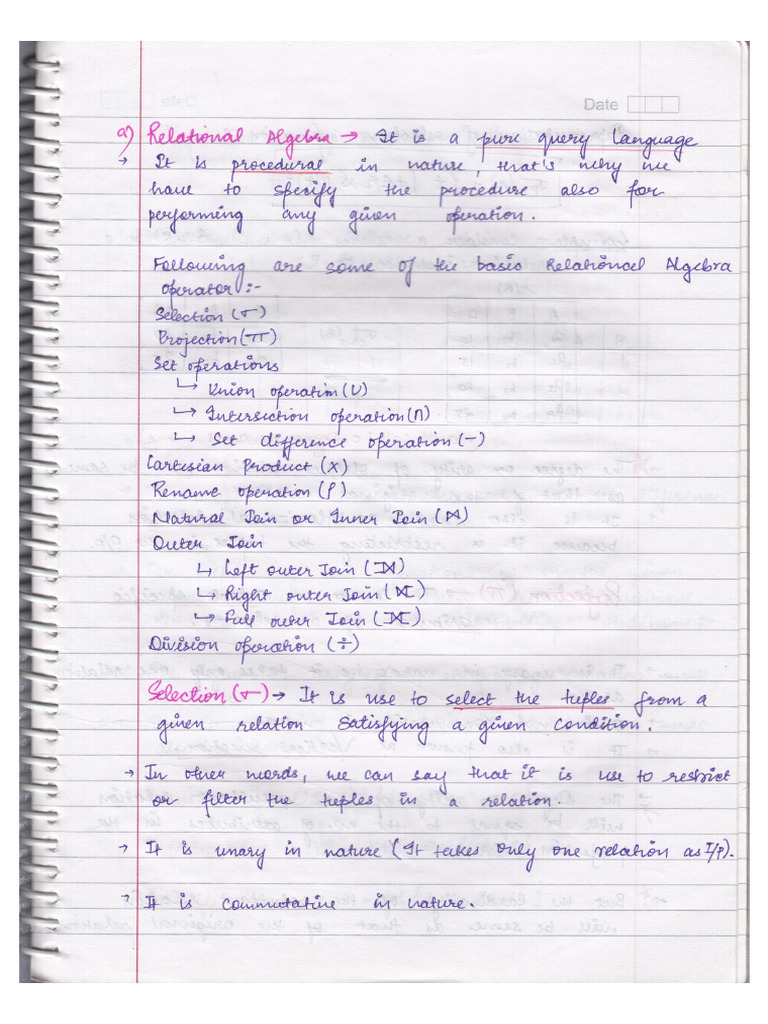 Date
a) Relational Algebra → It is a pure query language
→ It is procedural in nature, that's why we
have to specify the procedure also for
performing any given operation.
Following are some of the basic Relational Algebra
operator :-
Selection (σ)
Projection (π)
Set operations
↳ Union operation (∪)
↳ Intersection operation (∩)
↳ Set difference operation (−)
Cartesian Product (X)
Rename operation (ρ)
Natural Join or Inner Join (⋈)
Outer Join
↳ Left outer Join (⟕)
↳ Right outer Join (⟖)
↳ Full outer Join (⟗)
Division operation (÷)
Selection (σ) → It is use to select the tuples from a
given relation satisfying a given condition.
→ In other words, we can say that it is use to restrict
or filter the tuples in a relation.
→ It is unary in nature (It takes only one relation as I/P).
→ It is commutative in nature.